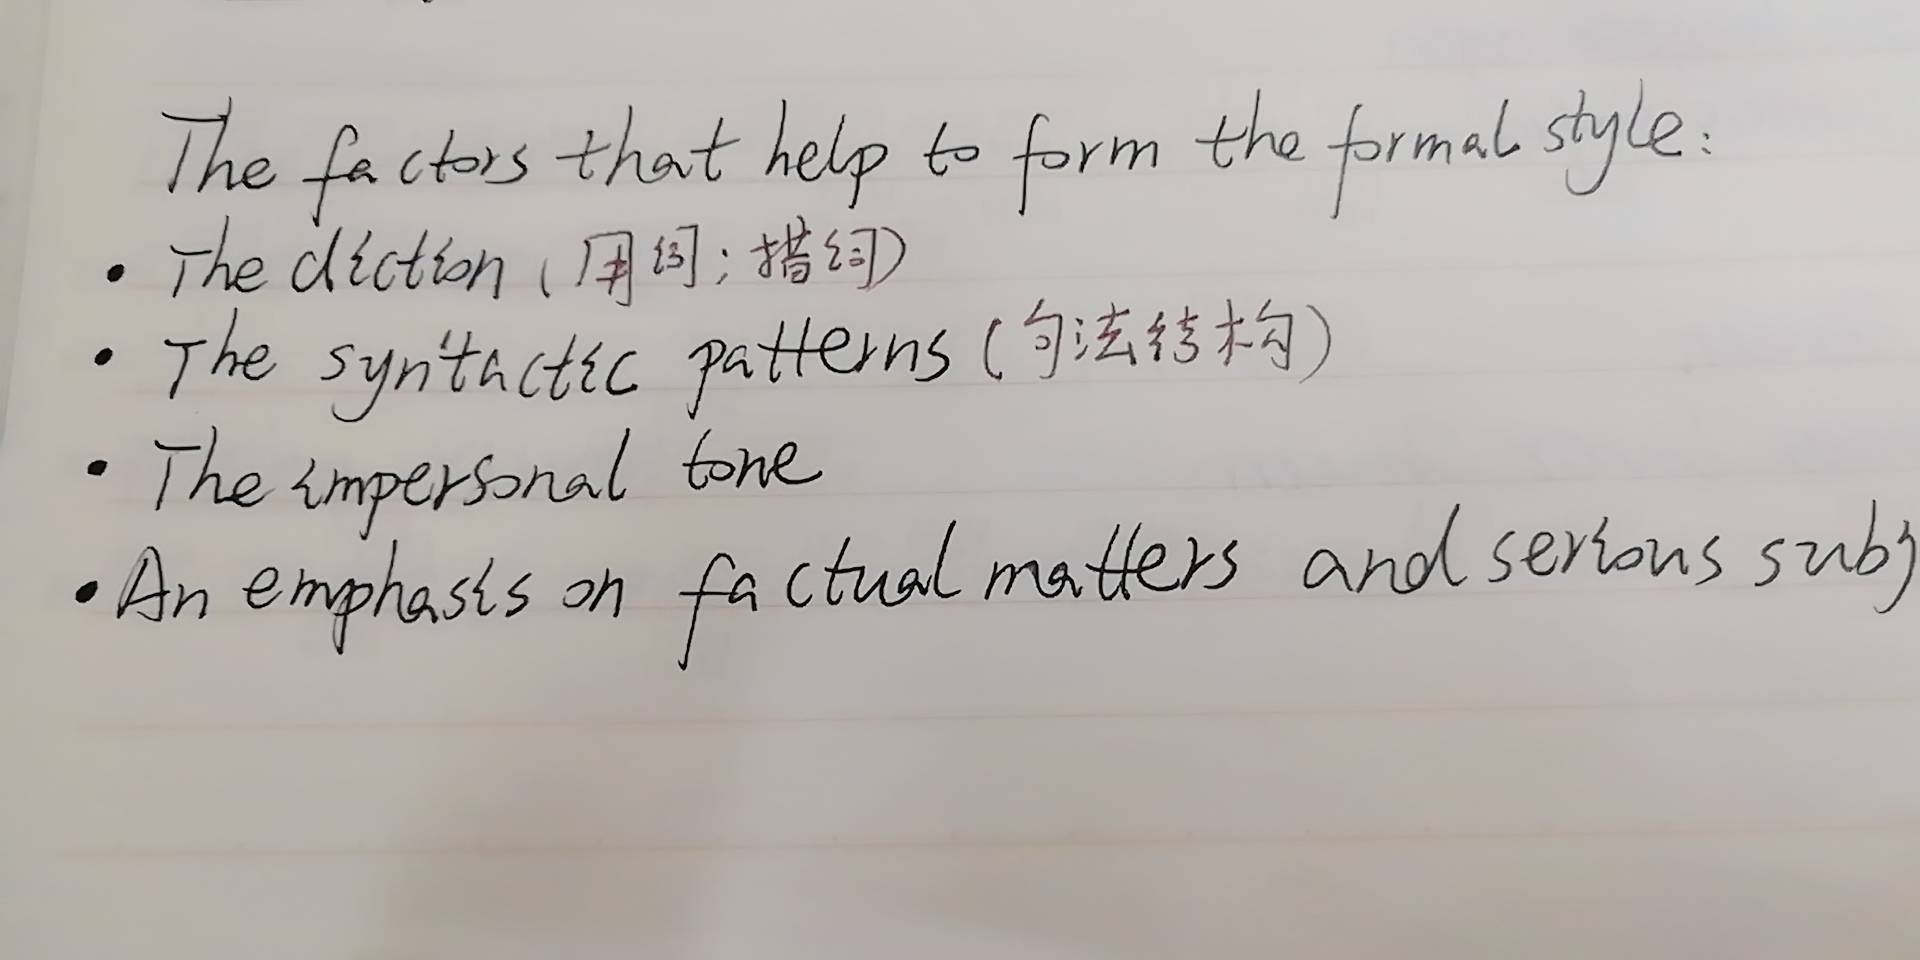 The factors that help to form the formal style:
• The diction (用词; 措词)
• The syntactic patterns (句法结构)
• The impersonal tone
• An emphasis on factual matters and serious subj